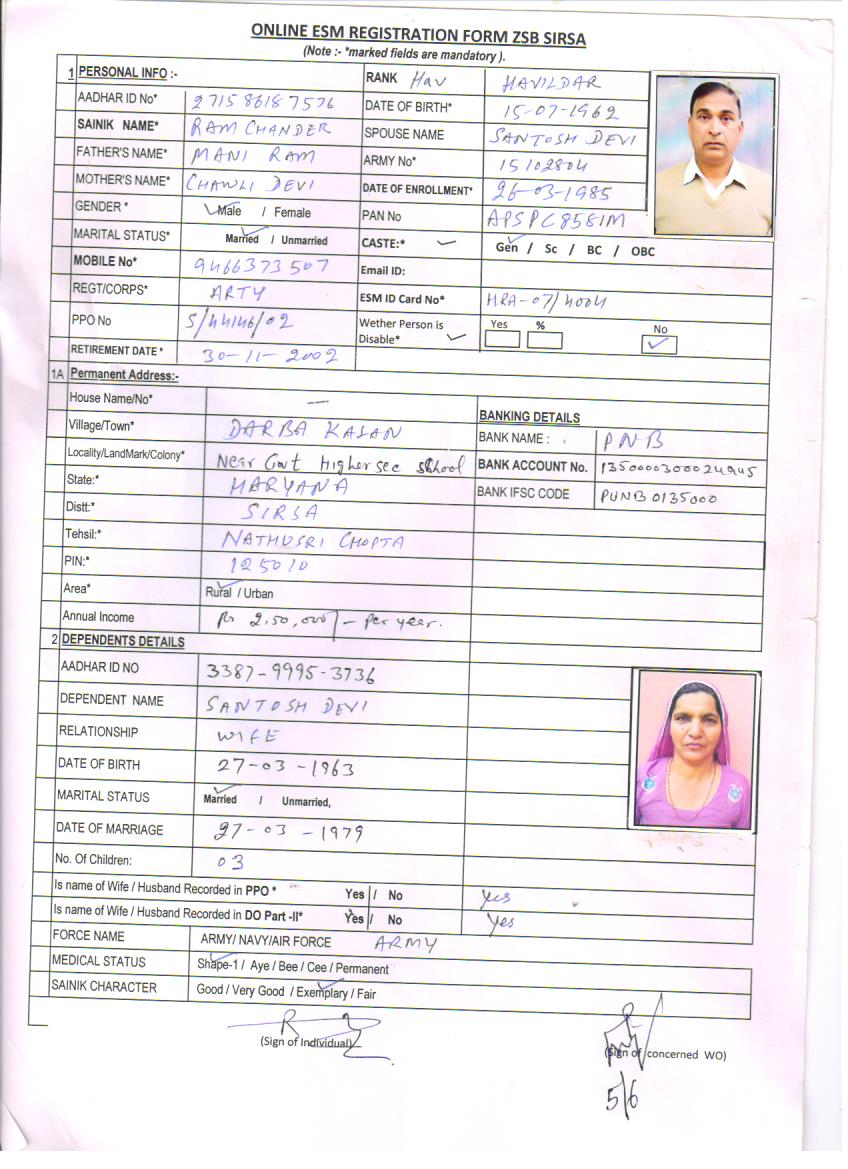 ONLINE ESM REGISTRATION FORM ZSB SIRSA
(Note :- *marked fields are mandatory ).
1 PERSONAL INFO :-
RANK Hav HAVILDAR
AADHAR ID No* 271586187576
DATE OF BIRTH* 15-07-1962
SAINIK NAME* RAM CHANDER
SPOUSE NAME SANTOSH DEVI
FATHER'S NAME* MANI RAM
ARMY No* 15102804
MOTHER'S NAME* CHAWLI DEVI
DATE OF ENROLLMENT* 26-03-1985
GENDER * Male / Female
PAN No APSPC8581M
MARITAL STATUS* Married / Unmarried
CASTE:* Gen / Sc / BC / OBC
MOBILE No* 9466373507
Email ID:
REGT/CORPS* ARTY
ESM ID Card No* HRA-07/4004
PPO No S/44146/02
Wether Person is Disable* Yes % No
RETIREMENT DATE * 30-11-2002
1A Permanent Address:-
House Name/No* —
BANKING DETAILS
Village/Town* DARBA KALAN
BANK NAME : PNB
Locality/LandMark/Colony* Near Govt Higher sec school
BANK ACCOUNT No. 1350000300024945
State:* HARYANA
BANK IFSC CODE PUNB0135000
Distt:* SIRSA
Tehsil:* NATHUSRI CHOPTA
PIN:* 125010
Area* Rural / Urban
Annual Income Rs 2,50,000/- per year.
2 DEPENDENTS DETAILS
AADHAR ID NO 3387-9995-3736
DEPENDENT NAME SANTOSH DEVI
RELATIONSHIP WIFE
DATE OF BIRTH 27-03-1963
MARITAL STATUS Married / Unmarried,
DATE OF MARRIAGE 27-03-1979
No. Of Children: 03
Is name of Wife / Husband Recorded in PPO * Yes / No Yes
Is name of Wife / Husband Recorded in DO Part -II* Yes / No Yes
FORCE NAME ARMY/ NAVY/AIR FORCE ARMY
MEDICAL STATUS Shape-1 / Aye / Bee / Cee / Permanent
SAINIK CHARACTER Good / Very Good / Exemplary / Fair
(Sign of Individual)
(Sign of concerned WO)
5/6